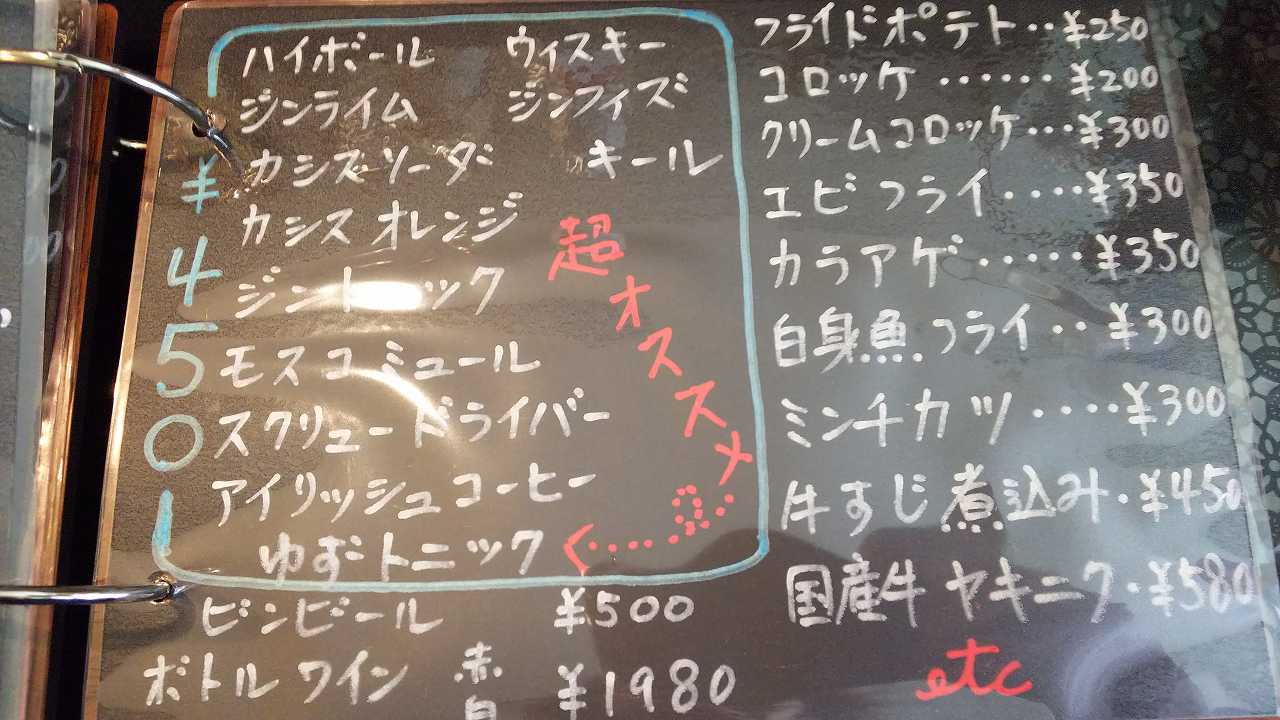 ハイボール ウィスキー
ジンライム ジンフィズ
カシスソーダ キール
カシスオレンジ
ジントニック
モスコミュール
スクリュードライバー
アイリッシュコーヒー
ゆずトニック
¥450
超オススメ
ビンビール ¥500
ボトルワイン 赤 白 ¥1980
フライドポテト‥¥250
コロッケ‥‥‥¥200
クリームコロッケ…¥300
エビフライ‥‥¥350
カラアゲ‥‥‥¥350
白身魚フライ‥¥300
ミンチカツ‥‥¥300
牛すじ煮込み・¥450
国産牛ヤキニク・¥580
etc